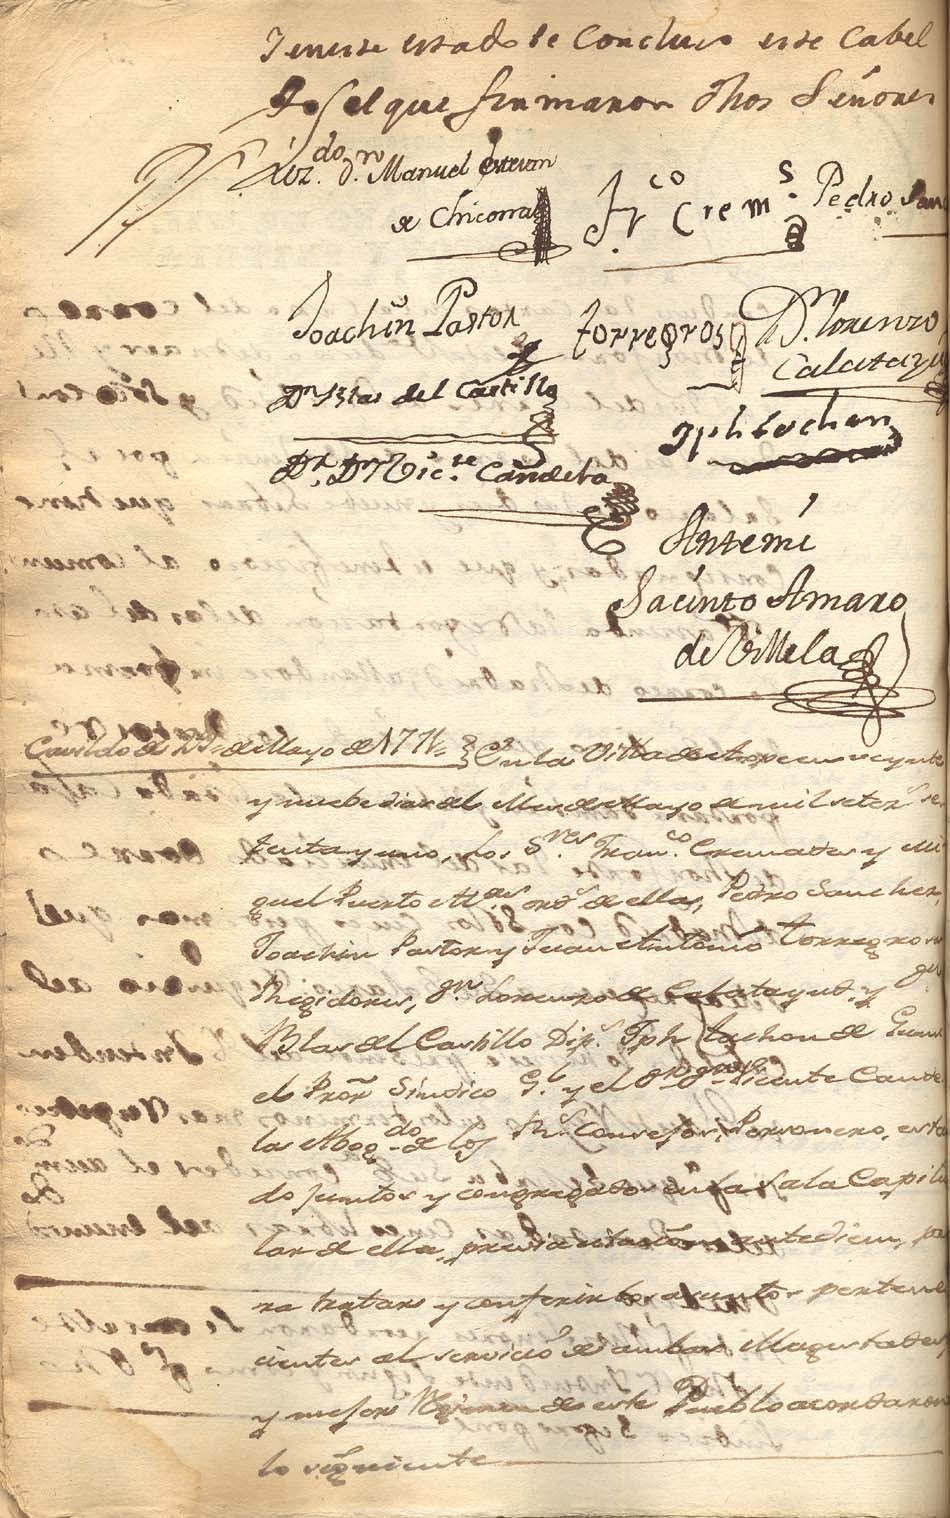 Y en este estado se Concluio este Cabil
do, el que firmaron dhos Señores
Lizdo. dn. Manuel Estevan
de Chicorras
Frco Crem.s
Pedro San
Joachin Pastor
torregrosa
Dn. lorenzo
Calatayu
Dn. Blas del Castillo
Jph tuchan
Dr. Dn. Victe. Candela
Antemi
Jacinto Amaro
de Villela
Cavildo de 29 de Mayo de 1771
En la Villa de Aspe en veynte
y nuebe dias del Mes de Mayo de mil setezs. se
tenta y uno, los Sres. Franco. Cremades y Mi
guel Puerto Alces. ords. de ella, Pedro Sanchez,
Joachin Pastor y Juan Antonio torregrosa
Regidores, dn. Lorenzo de Calatayud, y dn.
Blas del Castillo Dips. Jph tuchan de Gran
el Pror. Sindico Gl. y el Dr. dn. Vicente Cande
la Abogdo. de los Rs. Consejos, Personero, estan
do juntos y congregados en la sala Capitu
lar de ella, previa citacon. antediem, pa
ra tratar y conferir los asuntos pertene
cientes al servicio de ambas Magestades,
y mejor Regimen de este Pueblo acordaron
lo siguiente